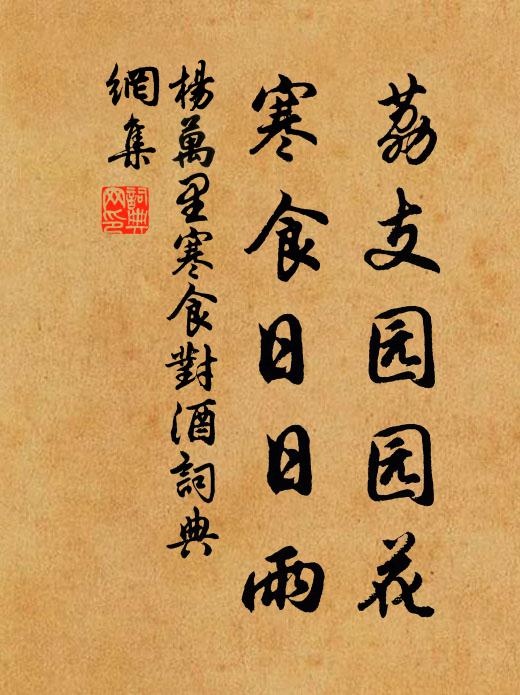 荔支园园花
寒食日日雨
楊萬里寒食對酒詞典
網集
詞典網印